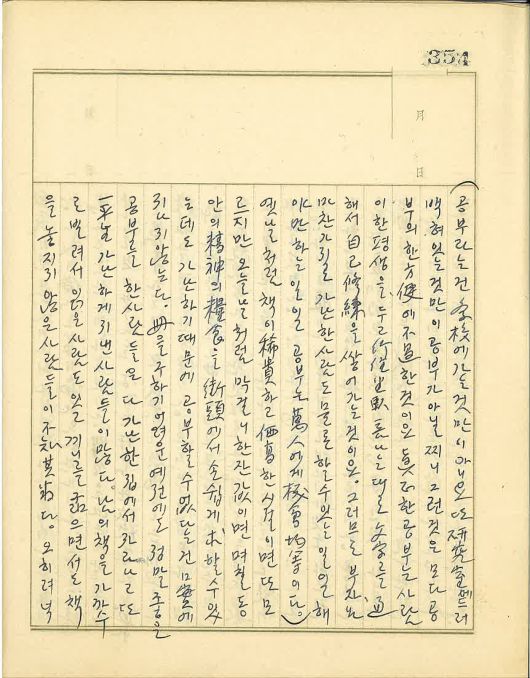 354
月
日
(공부라는건 学校에가는것만이아니요 또 研究室에드러
백혀있는것만이공부가아닐찌니 그런것은모다공
부의한方便에不過한것이요 眞正한공부는사람
이한평생을두고 나는대로 文字를通
해서 自己修練을쌓어가는것이요. 그러므로 부자도
마찬가지로 가난한사람도물론할수있는일일해
야만하는일일 공부는萬人에게機會均等이다.)
옛날처럼 책이稀貴하고 価高한시절이면또모
르지만 오늘날처럼 막걸리한잔값이면 며칠동
안의精神의糧食을 街頭에서 손쉽게求할수있
는데도 가난하기때문에 공부할수없다는건 口実에
지나지않는다. 冊을구하기어려운예전에도 정말좋은
공부를한사람들은 다가난한집에서자라나고 또
一平生가난하게지낸사람들이많다. 남의책을가끔
로빌려서읽은사람도있고 끼니를굶으면서도책
을놓지않은사람들이 다. 오히려넉